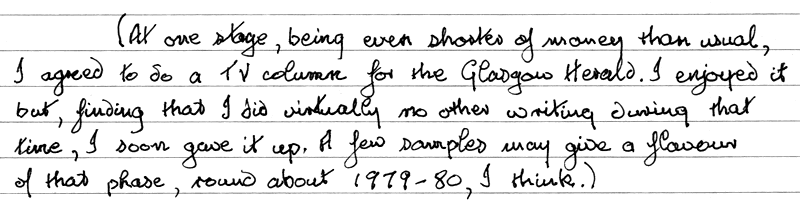 (At one stage, being even shorter of money than usual,
I agreed to do a TV column for the Glasgow Herald. I enjoyed it
but, finding that I did virtually no other writing during that
time, I soon gave it up. A few samples may give a flavour
of that phase, round about 1979-80, I think.)